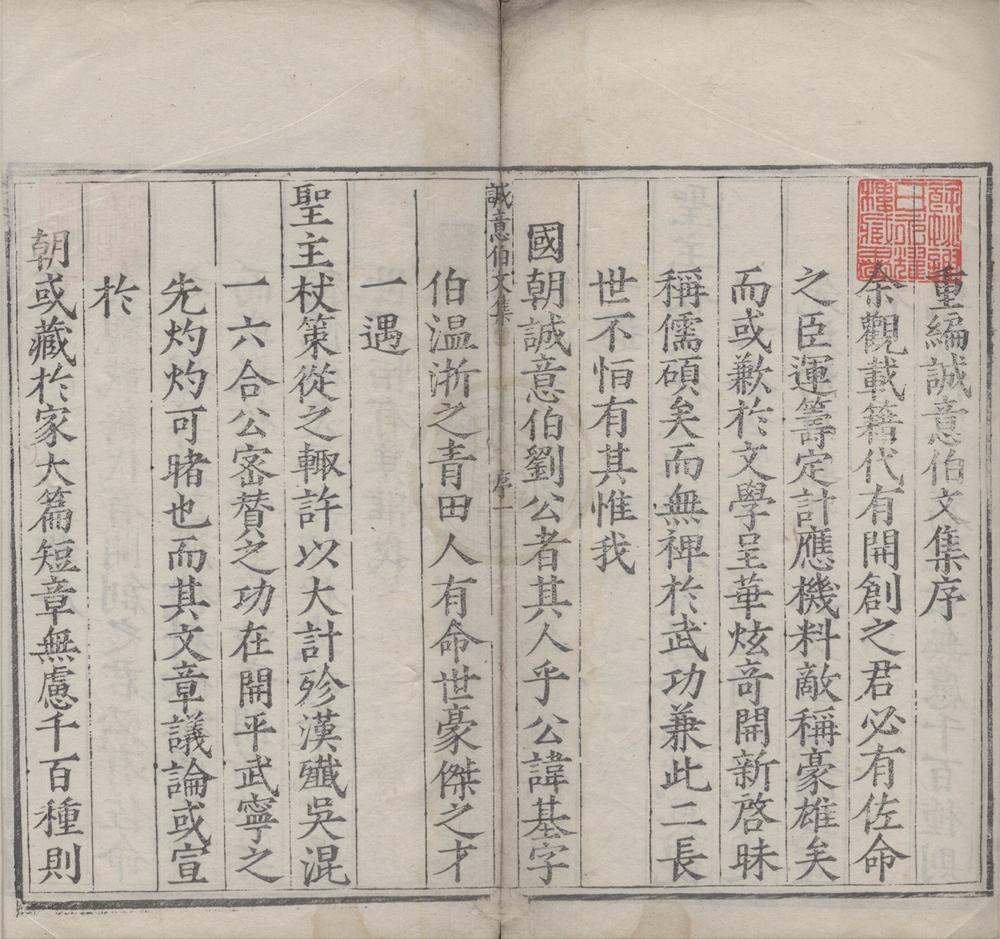 重編誠意伯文集序
余觀載籍代有開創之君必有佐命
之臣運籌定計應機料敵稱豪雄矣
而或歉於文學呈華炫奇開新啓昧
稱儒碩矣而無裨於武功兼此二長
世不恒有其惟我
國朝誠意伯劉公者其人乎公諱基字
誠意伯文集
序
一
伯温浙之青田人有命世豪傑之才
一遇
聖主杖策從之輙許以大計殄漢殲吳混
一六合公密贊之功在開平武寧之
先灼灼可睹也而其文章議論或宣
於
朝或藏於家大篇短章無慮千百種則